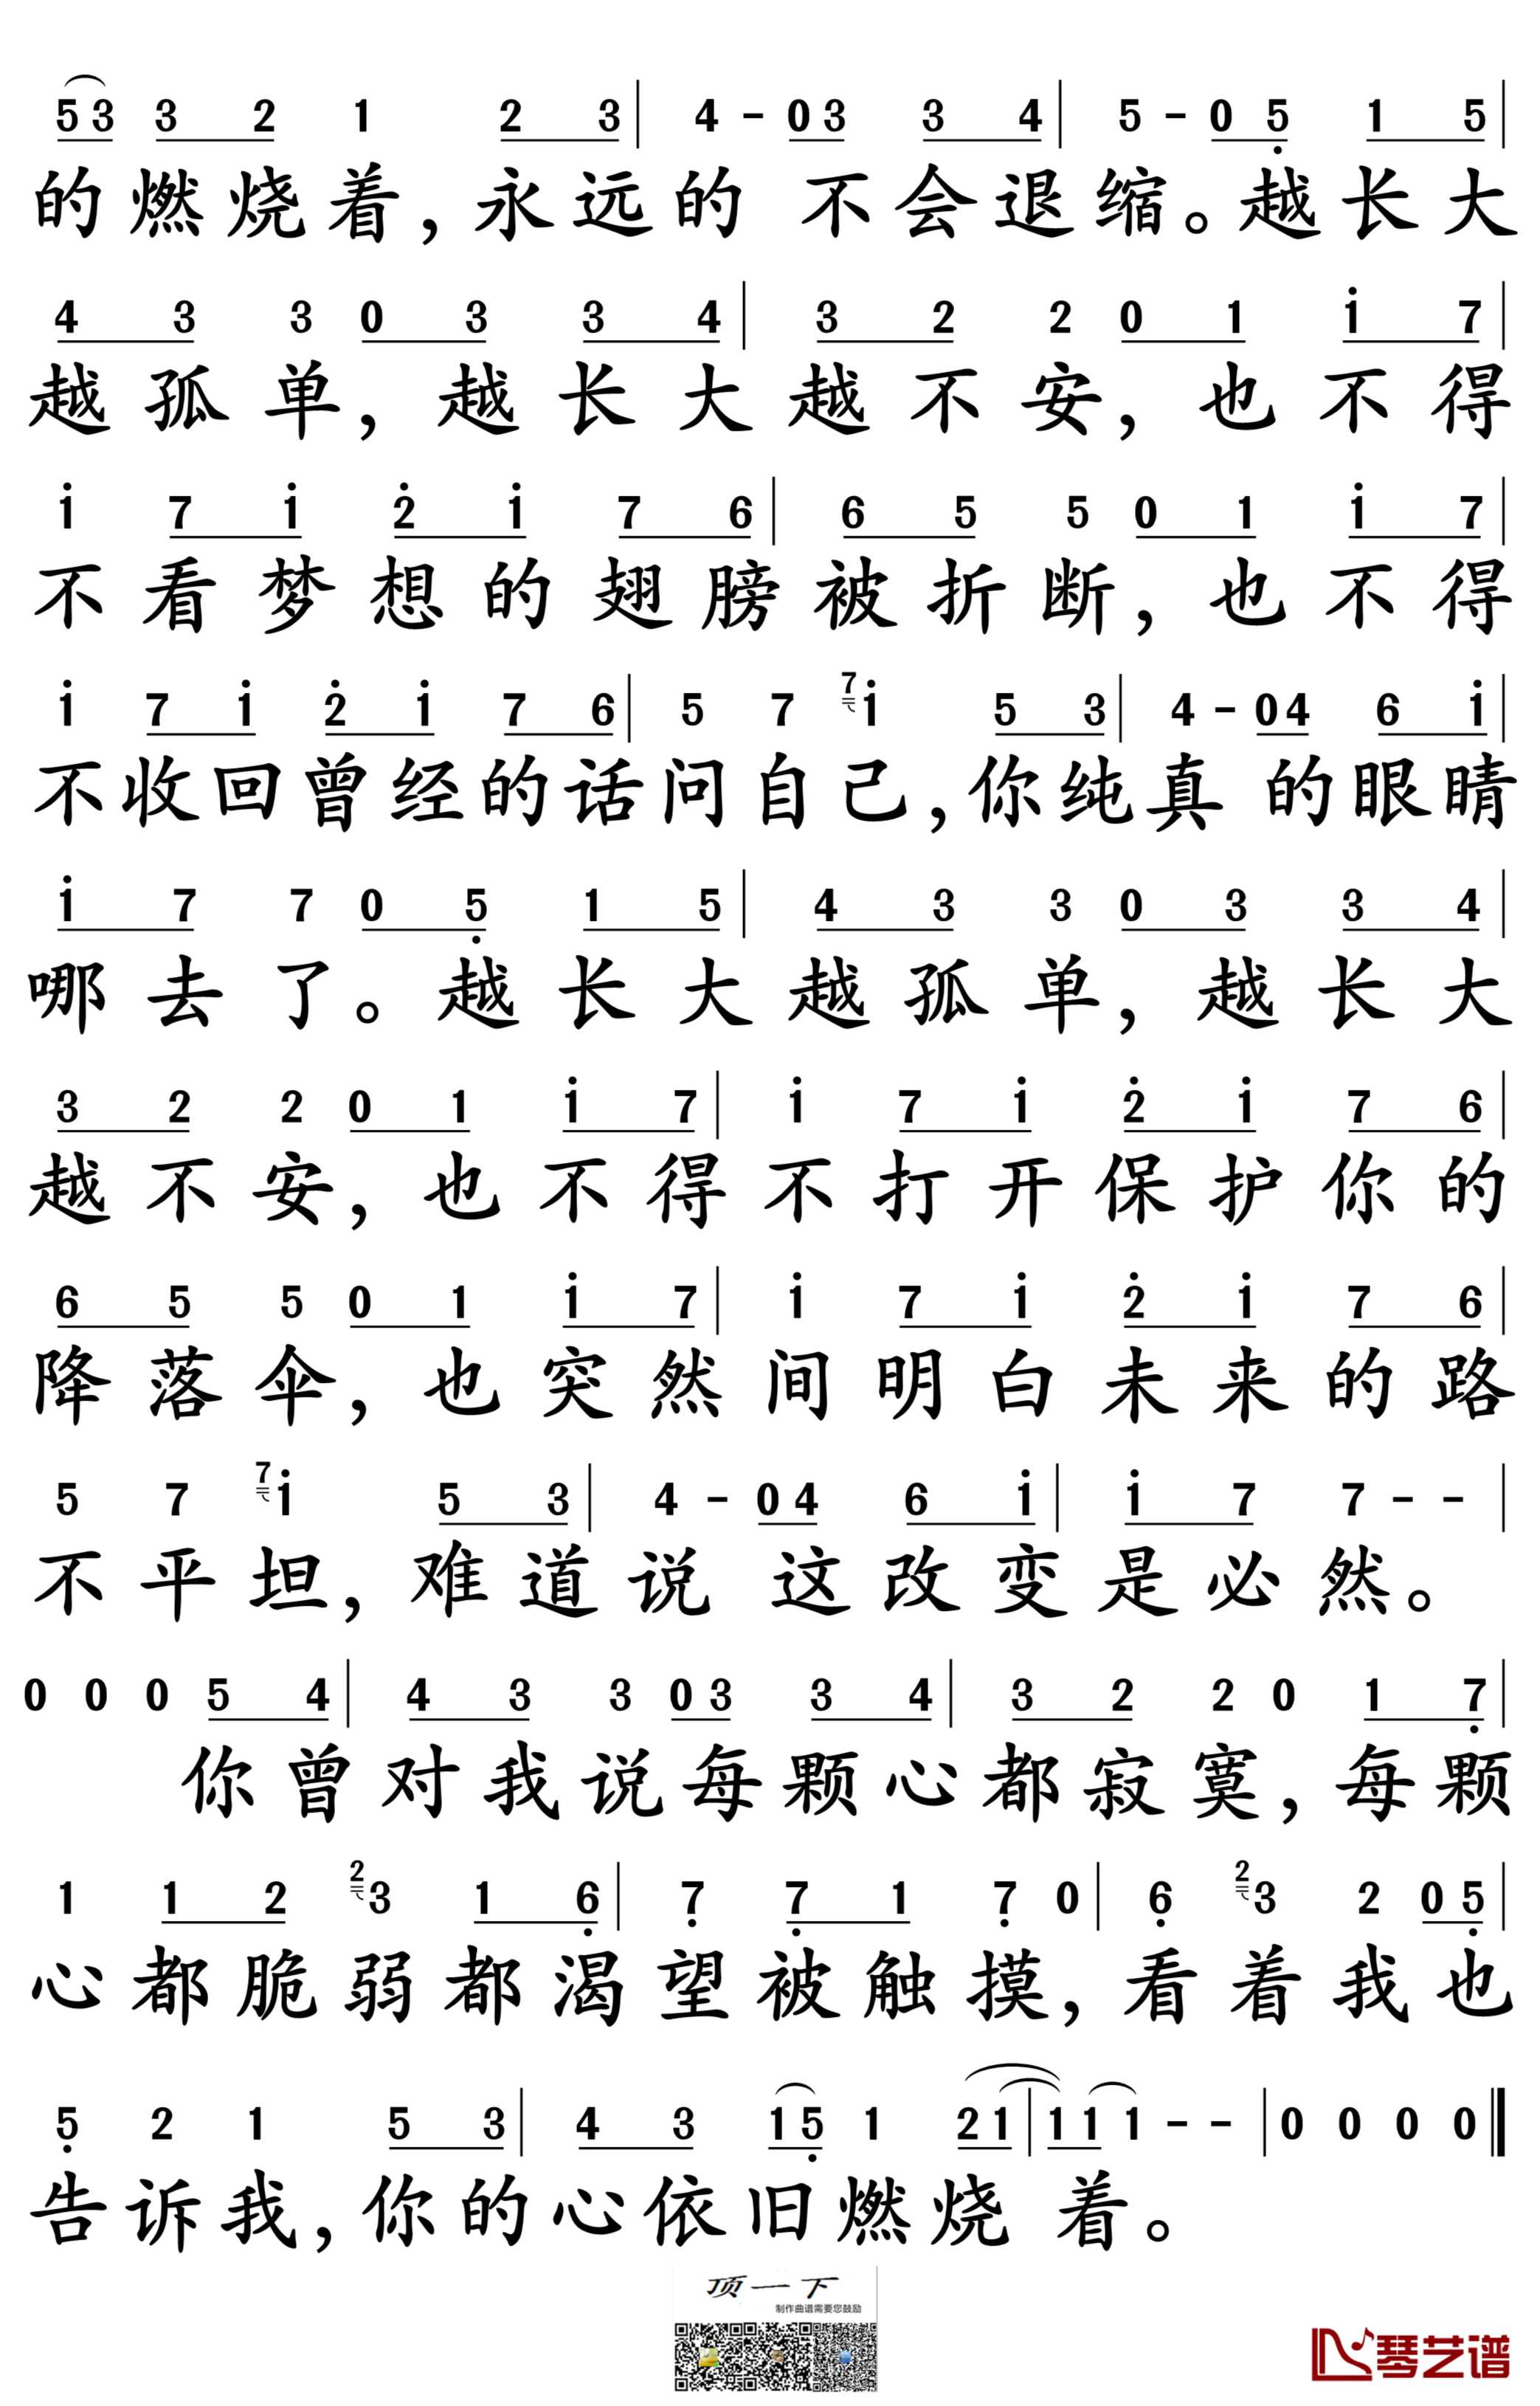 53 3 2 1 2 3 | 4 - 0 3 3 4 | 5 - 0 5̣ 1 5 |
的燃烧着，永远的 不会退缩。越长大
4 3 3 0 3 3 4 | 3 2 2 0 1 1̇ 7 |
越孤单，越长大越不安，也不得
1̇ 7 1̇ 2̇ 1̇ 7 6 | 6 5 5 0 1 1̇ 7 |
不看梦想的翅膀被折断，也不得
1̇ 7 1̇ 2̇ 1̇ 7 6 | 5 7 7 1̇ 5 3 | 4 - 0 4 6 1̇ |
不收回曾经的话问自己，你纯真 的眼睛
1̇ 7 7 0 5̣ 1 5 | 4 3 3 0 3 3 4 |
哪去了。越长大越孤单，越长大
3 2 2 0 1 1̇ 7 | 1̇ 7 1̇ 2̇ 1̇ 7 6 |
越不安，也不得不打开保护你的
6 5 5 0 1 1̇ 7 | 1̇ 7 1̇ 2̇ 1̇ 7 6 |
降落伞，也突然间明白未来的路
5 7 7 1̇ 5 3 | 4 - 0 4 6 1̇ | 1̇ 7 7 - - |
不平坦，难道说 这改变是必然。
0 0 0 5 4 | 4 3 3 0 3 3 4 | 3 2 2 0 1 7̣ |
你曾对我说每颗心都寂寞，每颗
1 1 2 2 3 1 6̣ | 7̣ 7̣ 1 7̣ 0 | 6̣ 2 3 2 0 5̣ |
心都脆弱都渴望被触摸，看着我也
5̣ 2 1 5 3 | 4 3 1 5̣ 1 2 1 | 1 1 1 - - | 0 0 0 0
告诉我，你的心依旧燃烧 着。
顶一下
制作曲谱需要您鼓励
琴艺谱